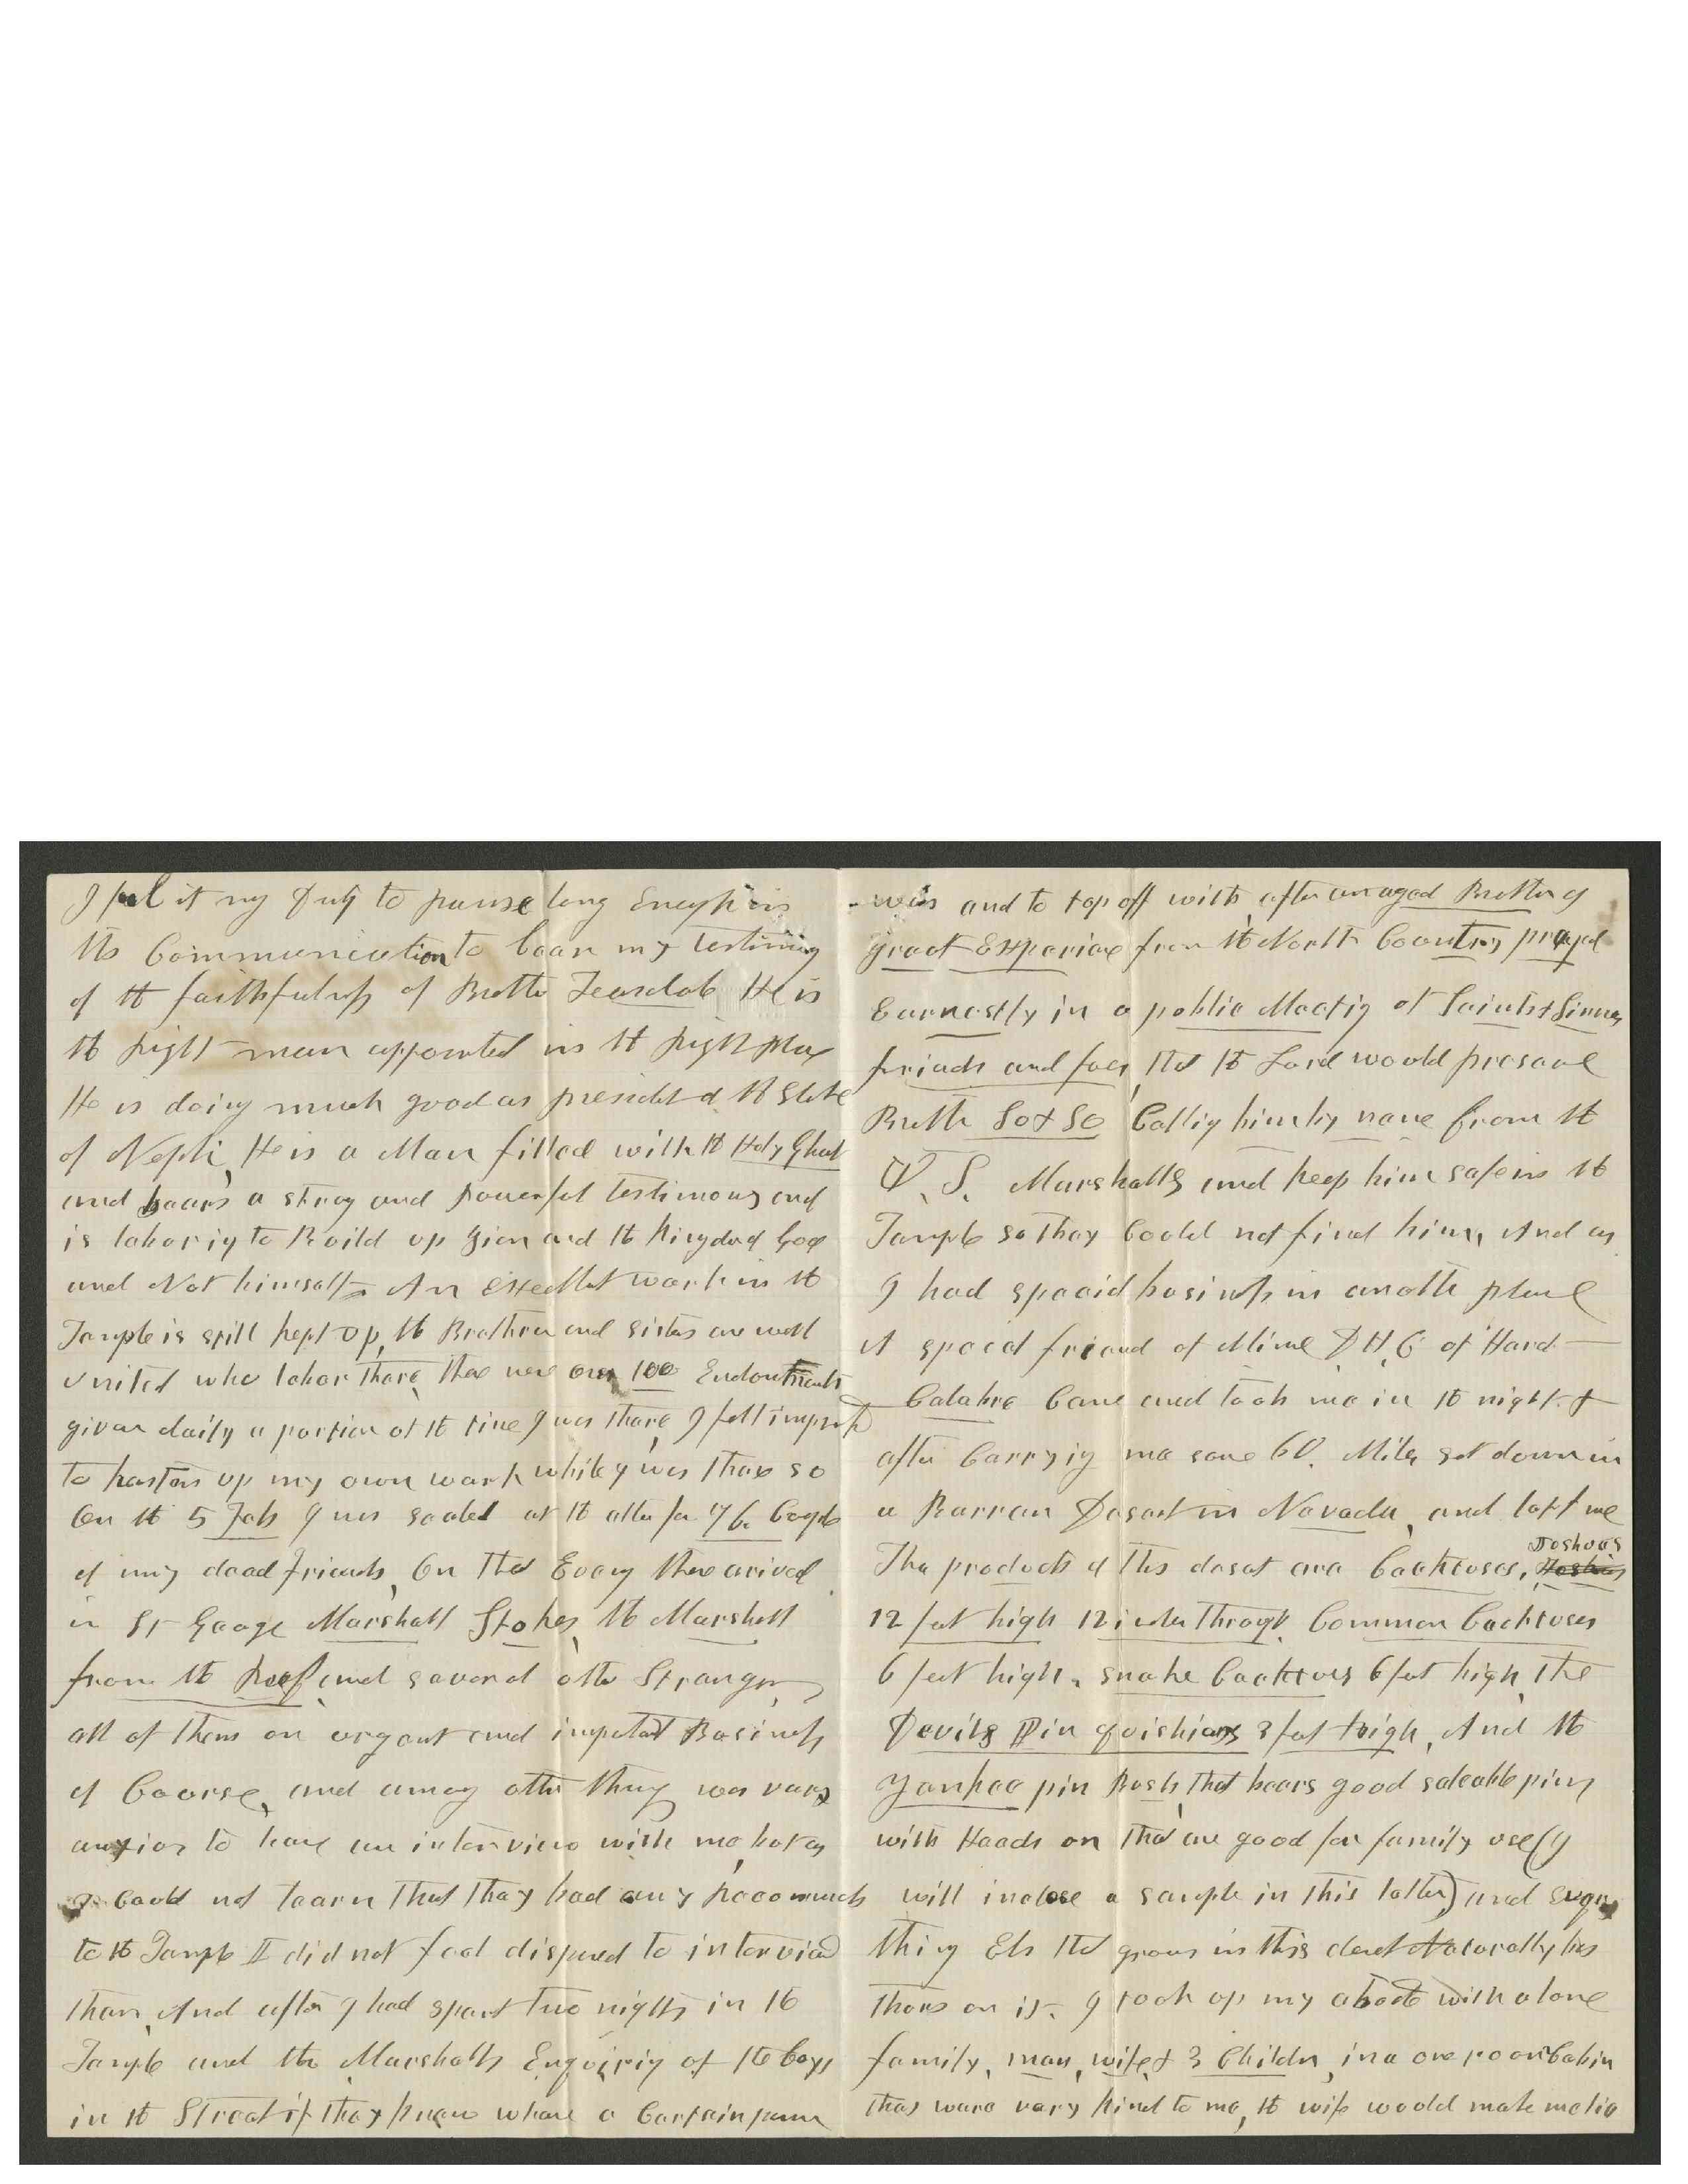 I feel it my duty to pause long Enough in
this Communication to bear my testimony
of the faithfulness of Brother Teasdale He is
the right man appointed in the right place
He is doing much good as president of the State
of Nephi, He is a Man filled with the Holy Ghost
and bears a strong and powerful testimony and
is laboring to Build up Zion and the Kingdom of God
and Not himself An Excellent work in the
Temple is still kept up, the Brethren and sisters are well
united who labor there, there were over 100 Endowments
given daily a portion of the time I was there, I felt impressed
to hasten up my own work while I was there so
On the 5 Feb I was sealed at the altar for Couple
of my dead friends, On that Evening there arived
in St George Marshall Stokes, the Marshall
from the Reef, and several other Strangers,
all of them on urgent and important Business
of Course, and among other things was very
anxious to have an interview with me, but as
I Could not learn that they had any Recommends
to the Temple I did not feel disposed to interview
them, And after I had spent two nights in the
Temple and the Marshalls Enquiring of the boys
in the Street if they knew whare a Certain man
was and to top off with, after an aged Brother of
great Experience from the North Country prayed
Earnestly in a public Meeting of Saints & Sinners
friends and foes, that the Lord would preserve
Brother So & So Calling him by name from the
U. S. Marshalls and keep him safe in the
Temple so they Could not find him, And as
I had special business in another place
A special friend of Mine D, H, C of Hard
Calabre Came and took me in the night &
after Carrying me some 60 Miles set down in
a Barren Desert in Nevada, and left me
The products of this desert are Cacktuses, Joshuas
12 feet high 12 inches through, Common Cacktuses
6 feet high, snake Cacktus 6 feet high, the
Devils Pin quishians 3 feet high, And the
Yankee pin Bush, that bears good saleable pins
with Heads on that are good for family use (I
will inclose a sample in this letter) and Evry
thing Els that grows in this desert Naturally has
thorns on it. I took up my abode with a lone
family, man, wife & 3 Children, in a one room Cabin
thay ware very kind to me, the wife would make me lie